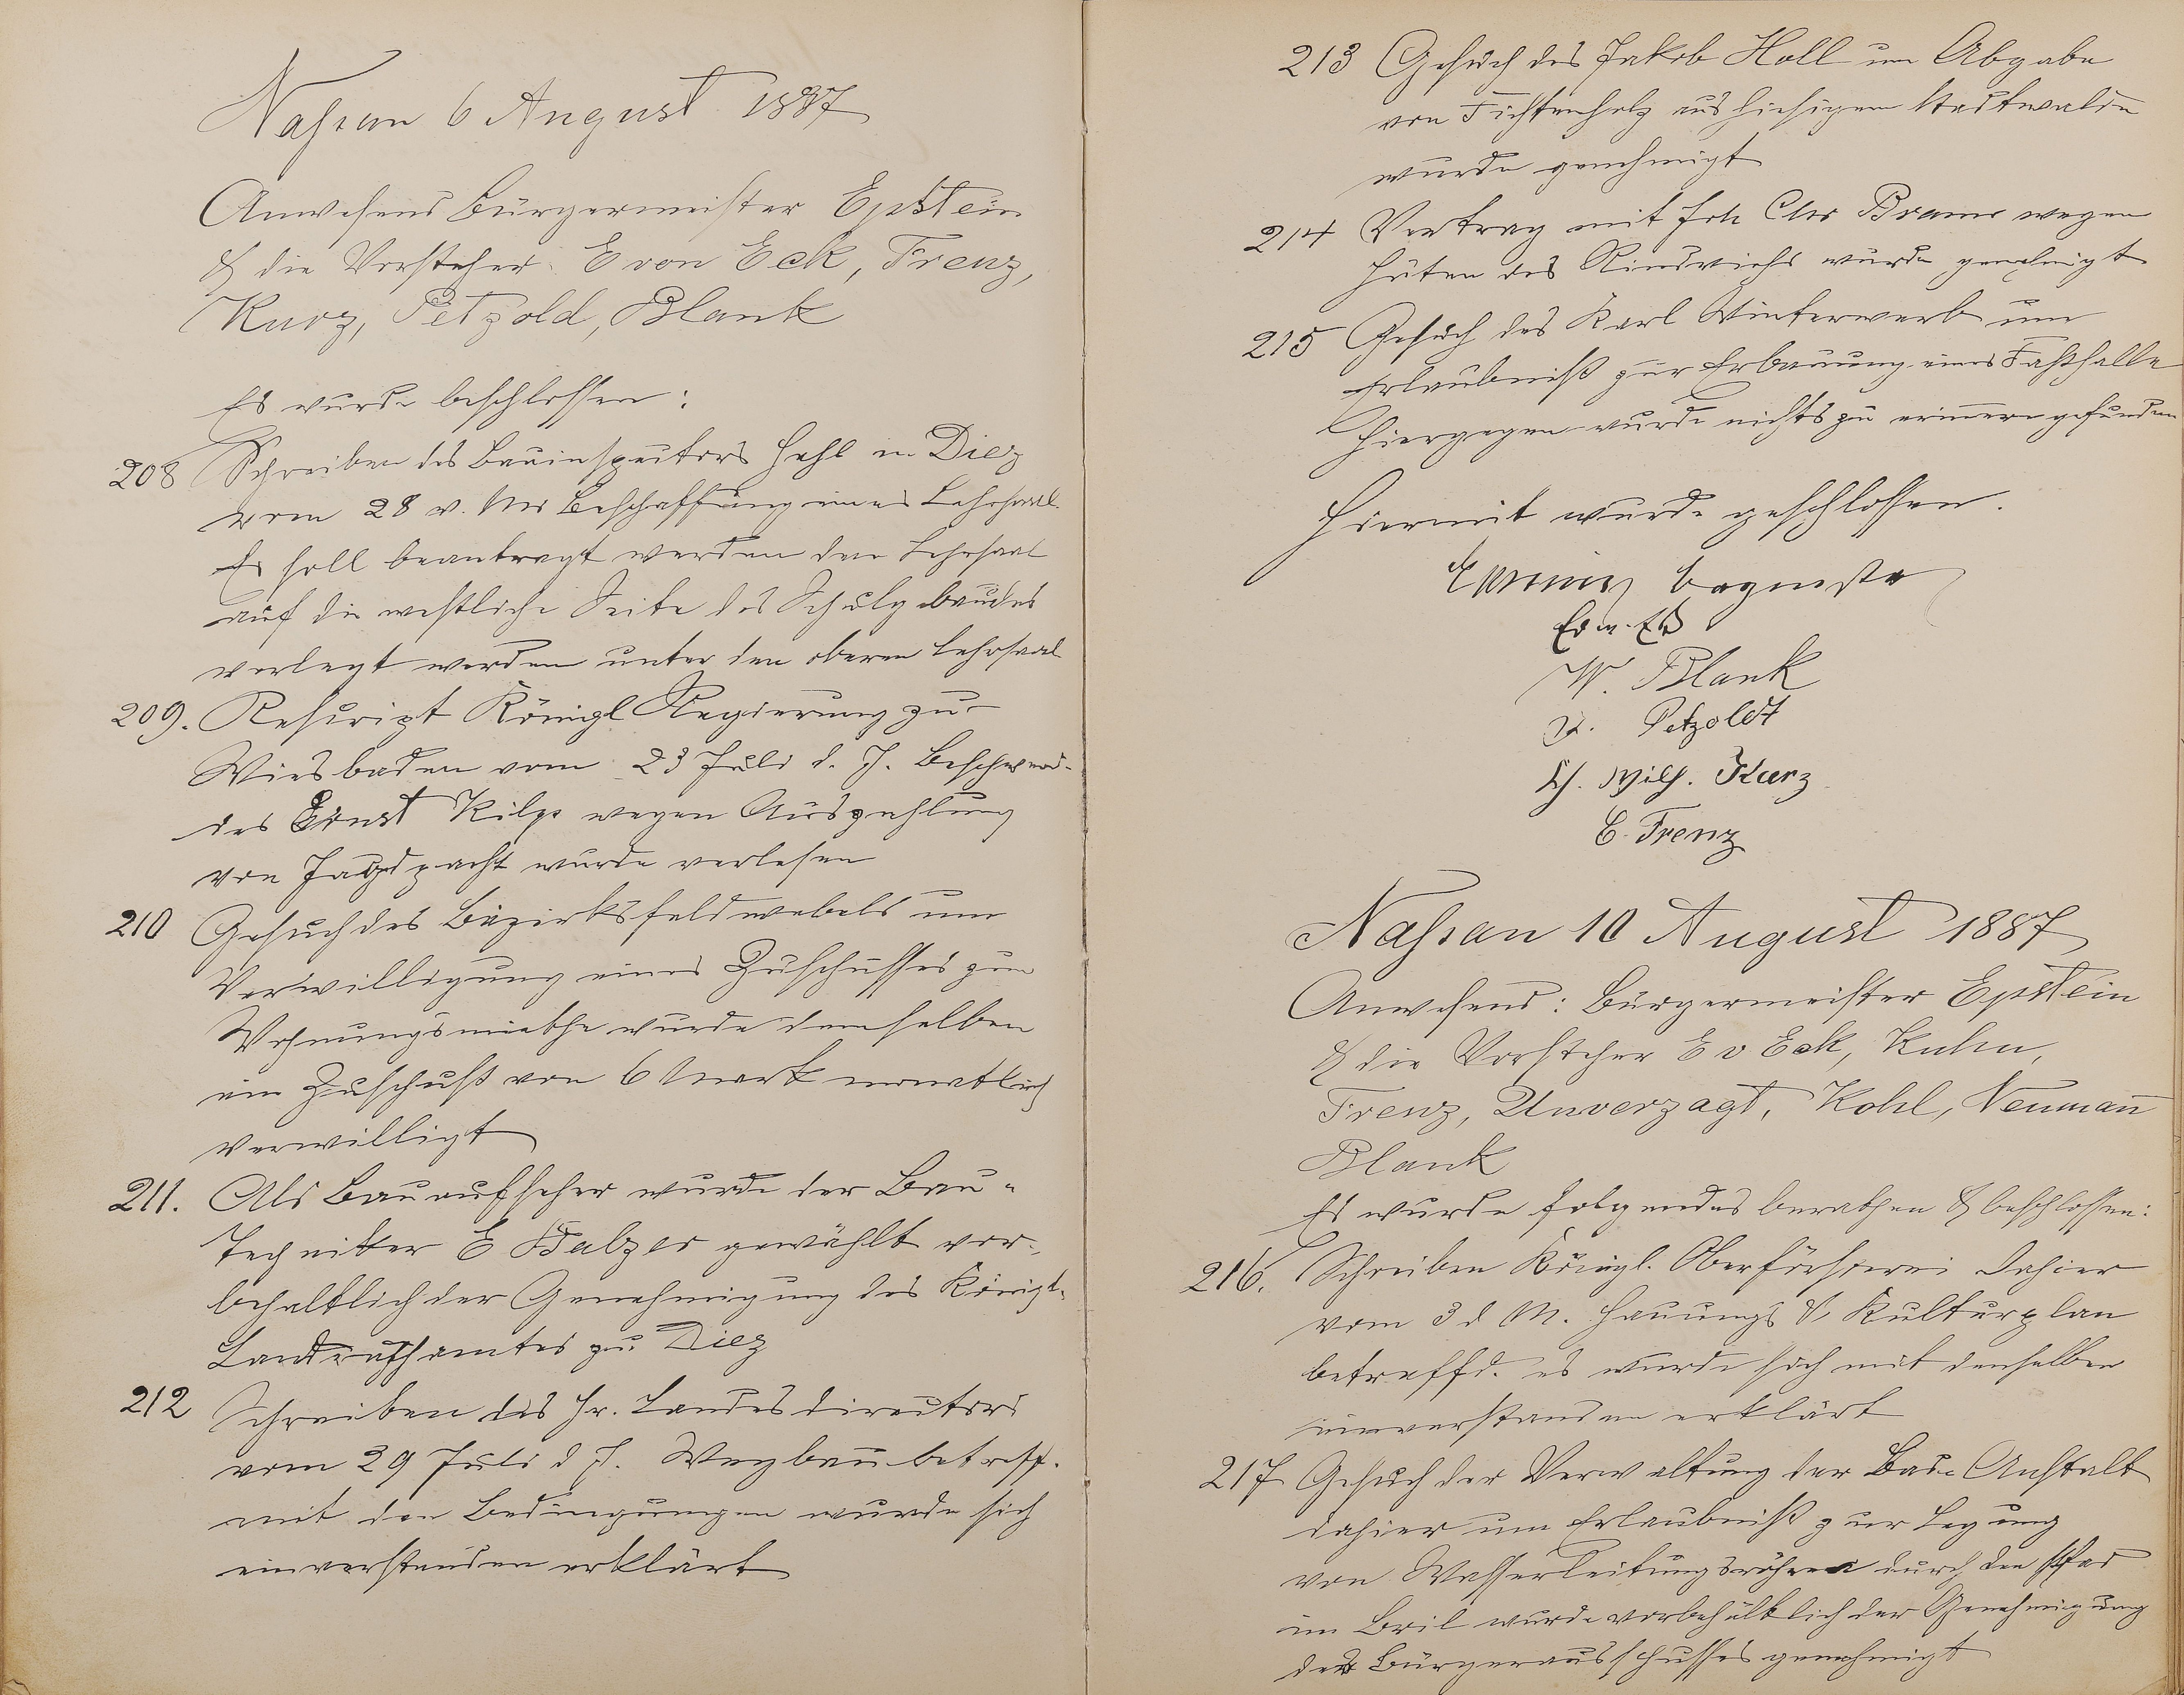 Nassau 6 August 1887
Anwesend Bürgermeister Epstein
& die Vorsteher E von Eck, Frenz,
Kurz, Petzold, Blank
Es wurde beschlossen:
208 Schreiben des Bauinspectors Hehl in Diez
vom 28 v. Mts Beschaffung eines Lehrsaal
Es soll beantragt werden den Lehrsaal
auf die westliche Seite des Schulgebäudes
verlegt werden unter den oberen Lehrsaal
209. Rescript Königl Regierung zu
Wiesbaden vom 23 Juli d. J. Beschwerd-
des Ernst Kilp wegen Auszahlung
von Jagdpacht wurde verlesen
210 Gesuch des Bezirksfeldwebels um
Verwilligung eines Zuschusses zum
Wohnungsmiethe wurde demselben
ein Zuschuß von 6 Mark monatlich
verwilligt
211. Als Bauaufseher wurde der Bau-
techniker E Balzer gewählt vor-
behaltlich der Genehmigung des Königl.
Landrathsamtes zu Diez
212 Schreiben des Hr. Landesdirectors
vom 29 Juli d J. Wegbau betreff.
mit den Bedingungen wurde sich
einverstanden erklärt
213 Gesuch des Jakob Holl um Abgabe
von Fichtenholz aus hiesigem Stadtwalde
wurde genehmigt
214 Vertrag mit Joh Chr wegen
Hüten des Rindviehs wurde genehmigt
215 Gesuch des Karl Winterwerb um
Erlaubniß zur Erbauung eines Faßhalle
Hiergegen wurde nichts zu erinnern gefunden
Hiermit wurde geschlossen.
W. Blank
Petzoldt
Wilh. Kurz
C. Frenz
Nassau 10 August 1887
Anwesend: Bürgermeister Epstein
& die Vorsteher E v Eck, Kuhn,
Frenz, Unverzagt, Kohl, Neumann
Blank
Es wurde folgendes berathen & beschlossen:
216. Schreiben Königl. Oberförsterei dahier
vom 3 d M. Hauungs & Kulturplan
betreffd. es wurde sich mit denselben
einverstanden erklärt
217 Gesuch der Verwaltung der Bade Anstalt
dahier um Erlaubniß zur Legung
von Wasserleitungsröhren durch den Pfad
im Bril wurde vorbehältlich der Genehmigung
des Bürgerausschusses genehmigt